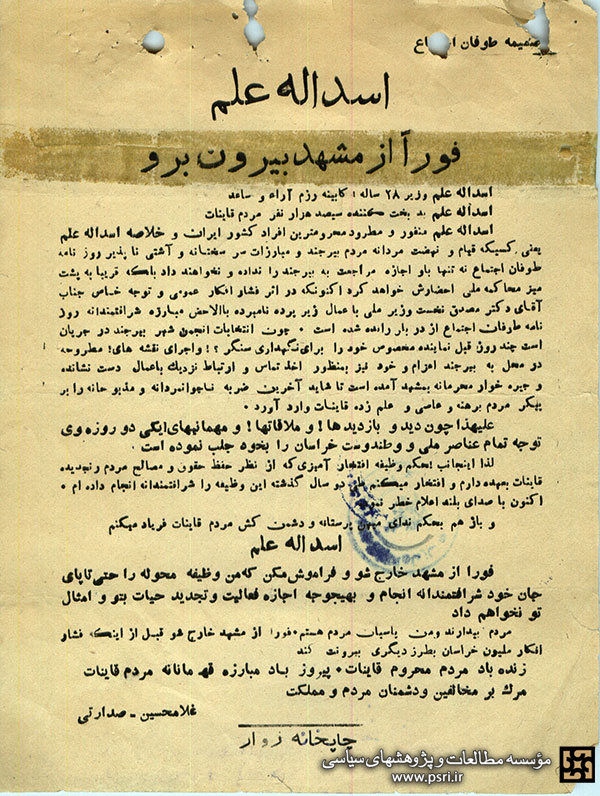 ضمیمه طوفان
اسداله علم
فوراً از مشهد بیرون برو
اسداله علم وزیر ۲۸ ساله ؛ کابینه رزم آراء و ساعد
اسداله علم بد بخت کننده سیصد هزار نفر مردم قاینات
اسداله علم منفور و مطرود و محرومترین افراد کشور ایران و خلاصه اسداله علم
یعنی کسیکه قیام و نهضت مردانه مردم بیرجند و مبارزات سر سختانه و آشتی نا پذیر روز نامه
طوفان اجتماع نه تنها بار اجازه مراجعت به بیرجند را نداده و نخواهند داد بلکه قریبا به پشت
میز محاکمه ملی احضارش خواهد کرد اکنونکه در اثر فشار افکار عمومی و توجه خاص جناب
آقای دکتر مصدق نخست وزیر ملی با عمال زیر پرده نامبرده بالاخص مبارزه شرافتمندانه روز
نامه طوفان اجتماع از در بار رانده شده است ۰ چون انتخابات انجمن شهر بیرجند در جریان
است چند روز قبل نماینده مخصوص خود را برای نگهداری سنگر ؟! و اجرای نقشه های! مطروحه
در محل به بیرجند اعزام و خود نیز بمنظور اخذ تماس و ارتباط نزدیک باعمال دست نشانده
و جیره خوار محرمانه بمشهد آمده است تا شاید آخرین ضربه ناجوانمردانه و مذبوحانه را بر
پیکر مردم برهنه و عاصی و علم زده قاینات وارد آورد ۰
علیهذا چون دید و بازدیدها ! و ملاقاتها ! و مهمانیهای ایگی دو روزه وی
توجه تمام عناصر ملی و وطندوست خراسان را بخود جلب نموده است ۰
لذا اینجانب بحکم وظیفه افتخار آمیزی که از نظر حفظ حقوق و مصالح مردم رنجدیده
قاینات بعهده دارم و افتخار میکنم دو سال گذشته این وظیفه را شرافتمندانه انجام داده ام ۰
اکنون با صدای بلند اعلام خطر
و باز هم بحکم ندای میهن پرستانه و دشمن کش مردم قاینات فریاد میکنم
اسداله علم
فورا از مشهد خارج شو و فراموش مکن که من وظیفه محوله را حتی تا پای
جان خود شرافتمندانه انجام و بهیچوجه اجازه فعالیت و تجدید حیات بتو و امثال
تو نخواهم داد
مردم بیدارند و من پاسبان مردم هستم ۰ فورا از مشهد خارج شو قبل از اینکه فشار
افکار ملیون خراسان بطرز دیگری بیرونت کند
زنده باد مردم محروم قاینات ۰ پیروز باد مبارزه قهرمانانه مردم قاینات
مرگ بر مخالفین و دشمنان مردم و مملکت
غلامحسین - صدارتی
چاپخانه زوار
مؤسسه مطالعات و پژوهشهای سیاسی
www.psri.ir